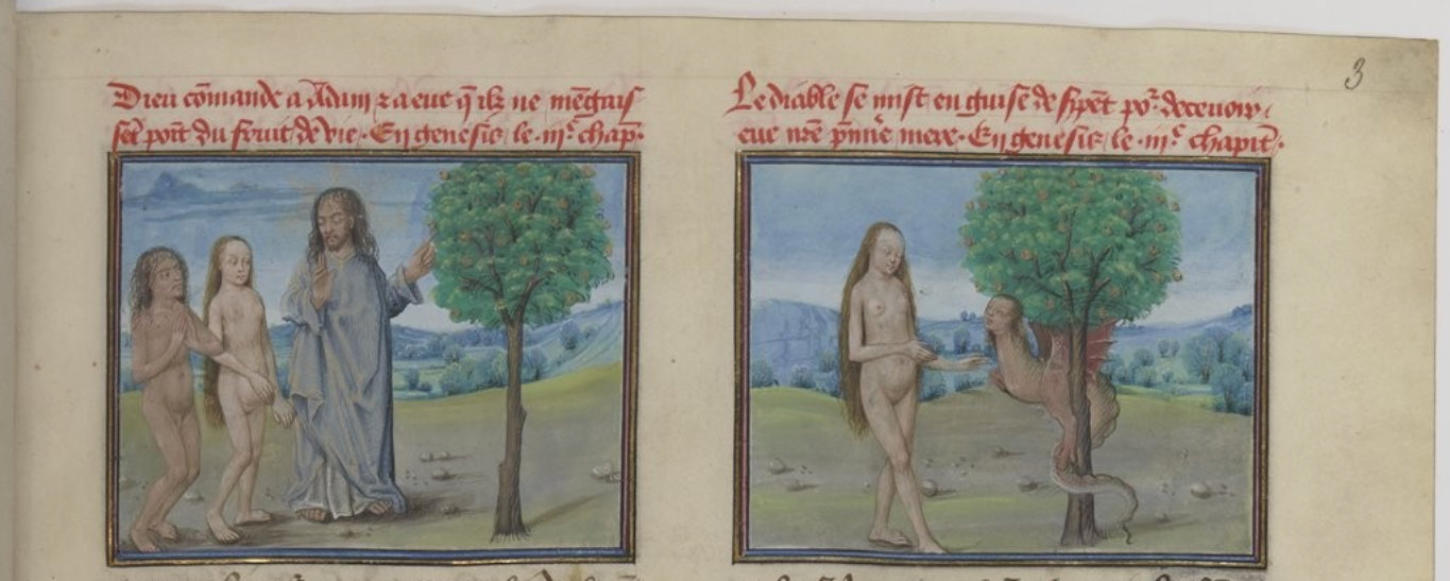 3
Dieu cōmande a Adam ⁊ a eue q̄ ilz ne mēgais
sēt poīt du fruit de vie · En genesis le · iijᵉ chap̄ ·
Le diable se mist en guise de s̄pēt poʳ deceuoir
eue nr̄e p̄mie mere · En genesis le · iijᵉ chapit̄ ·